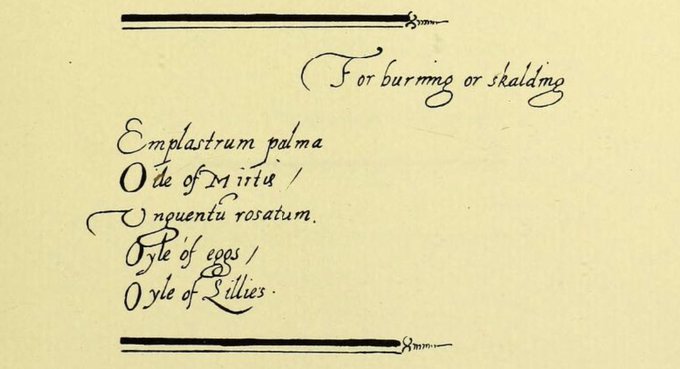 For burning or skalding
Emplastrum palma
Oile of Mirtis /
Unguentū rosatum.
Oyle of eggs /
Oyle of Lillies.